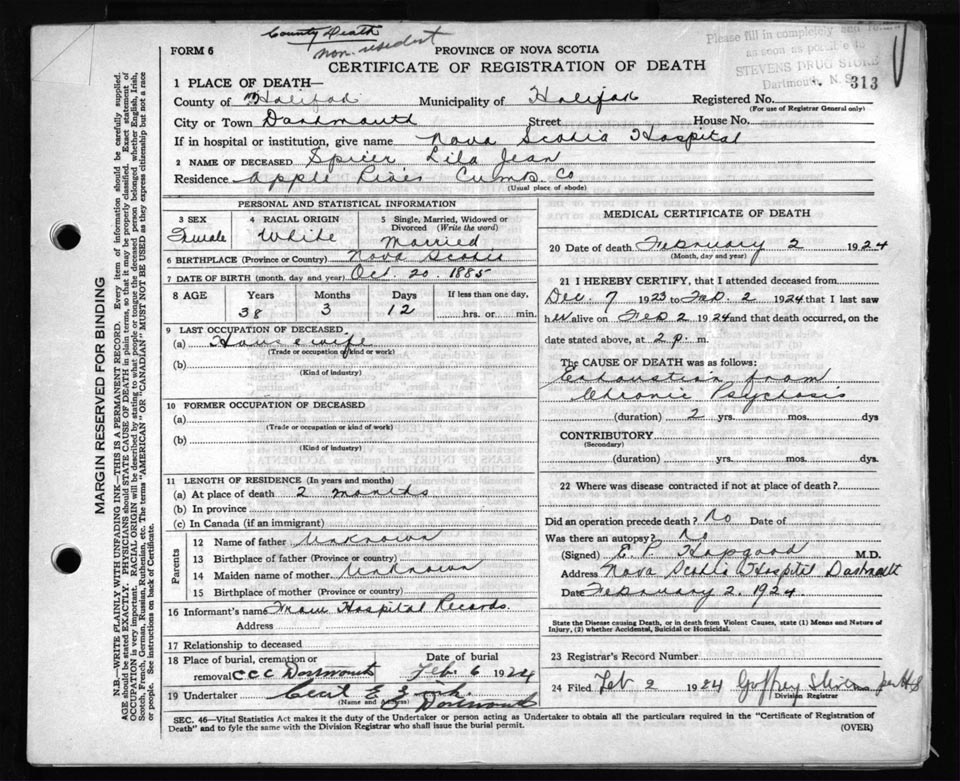 County Death
non. resident
Please fill in completely and
as soon as possible to
STEVENS DRUG STORE
Dartmouth, N. S.
313
FORM 6
PROVINCE OF NOVA SCOTIA
CERTIFICATE OF REGISTRATION OF DEATH
1 PLACE OF DEATH—
County of Halifax Municipality of Halifax Registered No.
(For use of Registrar General only)
City or Town Dartmouth Street House No.
If in hospital or institution, give name Nova Scotia Hospital
2 NAME OF DECEASED Spicer Lila Jean
Residence Apple River Cumb. Co
(Usual place of abode)
PERSONAL AND STATISTICAL INFORMATION
3 SEX Female
4 RACIAL ORIGIN White
5 Single, Married, Widowed or Divorced (Write the word) Married
6 BIRTHPLACE (Province or Country) Nova Scotia
7 DATE OF BIRTH (month, day and year) Oct. 20. 1885
8 AGE Years Months Days If less than one day,
38 3 12 hrs. or min.
9 LAST OCCUPATION OF DECEASED
(a) Housewife
(Trade or occupation or kind or work)
(b)
(Kind of industry)
10 FORMER OCCUPATION OF DECEASED
(a)
(Trade or occupation or kind of work)
(b)
(Kind of industry)
11 LENGTH OF RESIDENCE (In years and months)
(a) At place of death 2 months
(b) In province
(c) In Canada (if an immigrant)
Parents
12 Name of father Unknown
13 Birthplace of father (Province or country)
14 Maiden name of mother Unknown
15 Birthplace of mother (Province or country)
16 Informant's name From Hospital Records.
Address
17 Relationship to deceased
18 Place of burial, cremation or removal CCC Dartmouth
Date of burial Feb 6 1924
19 Undertaker Cecil E
(Name and Address) Dartmouth
MEDICAL CERTIFICATE OF DEATH
20 Date of death February 2 1924
(Month, day and year)
21 I HEREBY CERTIFY, that I attended deceased from
Dec. 7 1923 to Feb. 2 1924 that I last saw
her alive on Feb 2 1924 and that death occurred, on the
date stated above, at 2 p. m.
The CAUSE OF DEATH was as follows:
Exhaustion from
Chronic Psychosis
(duration) 2 yrs. mos. dys
CONTRIBUTORY
(Secondary)
(duration) yrs. mos. dys.
22 Where was disease contracted if not at place of death?
Did an operation precede death? No Date of
Was there an autopsy? No
(Signed) E. P. Hopgood M.D.
Address Nova Scotia Hospital Dartmouth
Date February 2. 1924
State the Disease causing Death, or in death from Violent Causes, state (1) Means and Nature of
Injury, (2) whether Accidental, Suicidal or Homicidal.
23 Registrar's Record Number
24 Filed Feb 2 1924 Goffrey Stevens per
Division Registrar
SEC. 46—Vital Statistics Act makes it the duty of the Undertaker or person acting as Undertaker to obtain all the particulars required in the "Certificate of Registration of
Death" and to fyle the same with the Division Registrar who shall issue the burial permit.
(OVER)
MARGIN RESERVED FOR BINDING
N.B.—WRITE PLAINLY WITH UNFADING INK—THIS IS A PERMANENT RECORD. Every item of information should be carefully supplied.
AGE should be stated EXACTLY. PHYSICIANS should STATE CAUSE OF DEATH in plain terms, so that it may be properly classified. Exact statement of
OCCUPATION is very important. RACIAL ORIGIN will be described by stating to what people or tongue the deceased person belonged whether English, Irish,
Scotch, French, German, Russian, Ruthenian, etc. The terms "AMERICAN" OR "CANADIAN" MUST NOT BE USED as they express citizenship but not a race
or people. See instructions on back of Certificate.